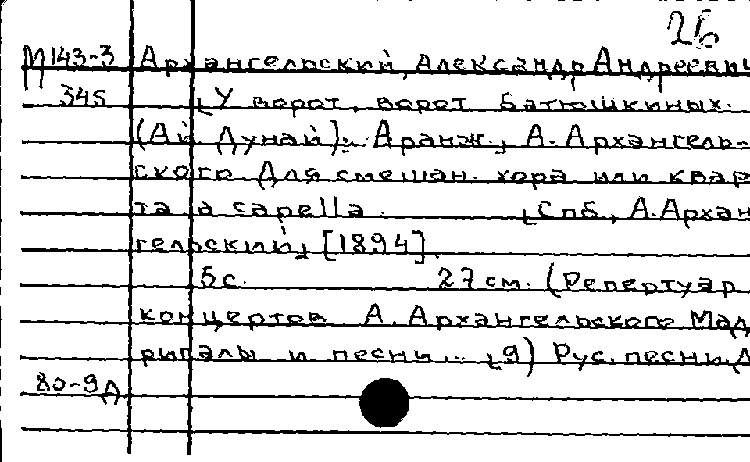 26
М143-3 Архангельский, Александр Андреевич
345 [У ворот, ворот батюшкиных.
(Ай Дунай). Аранж. А. Архангель-
ского. Для смешан. хора или квар
та a capella. [Спб., А. Архан
гельский, [1894].
5 с. 27 см. (Репертуар
концертов А. Архангельского. Мад
ригалы и песни... [9) Рус. песни.
80-9д